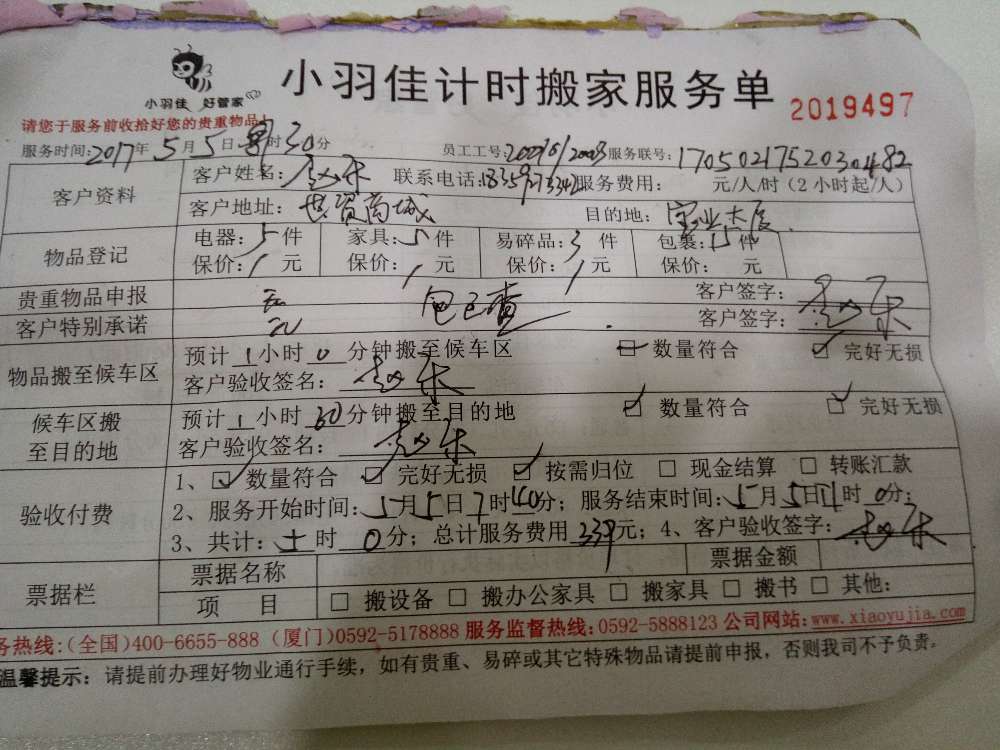 小羽佳计时搬家服务单
小羽佳 好管家
2019497
请您于服务前收拾好您的贵重物品!
服务时间:2017年5月5日 时30分 员工工号: 服务联号:1705021752030482
客户资料
客户姓名: 联系电话: 服务费用: 元/人/时(2小时起/人)
客户地址:世贸商城 目的地:宝业大厦
物品登记
电器:5件 家具:5件 易碎品:3件 包裹:15件
保价:/元 保价:/元 保价:/元 保价: 元
贵重物品申报 无 包已查 客户签字:
客户特别承诺 无 客户签字:
物品搬至候车区
预计1小时0分钟搬至候车区 数量符合 完好无损
客户验收签名:
候车区搬至目的地
预计1小时30分钟搬至目的地 数量符合 完好无损
客户验收签名:
验收付费
1、数量符合 完好无损 按需归位 现金结算 转账汇款
2、服务开始时间:5月5日7时40分;服务结束时间:5月5日 时0分;
3、共计: 时0分;总计服务费用339元;4、客户验收签字:
票据栏
票据名称 票据金额
项 目 搬设备 搬办公家具 搬家具 搬书 其他:
务热线:(全国)400-6655-888 (厦门)0592-5178888 服务监督热线:0592-5888123 公司网站:www.xiaoyujia.com
温馨提示:请提前办理好物业通行手续,如有贵重、易碎或其它特殊物品请提前申报,否则我司不予负责。